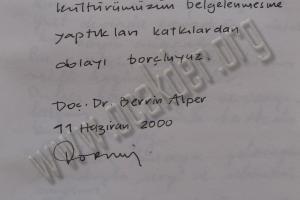 kültürümüzün belgelenmesine
yaptıkları katkılardan
dolayı borçluyuz.
Doç. Dr. Berrin Alper
11 Haziran 2000